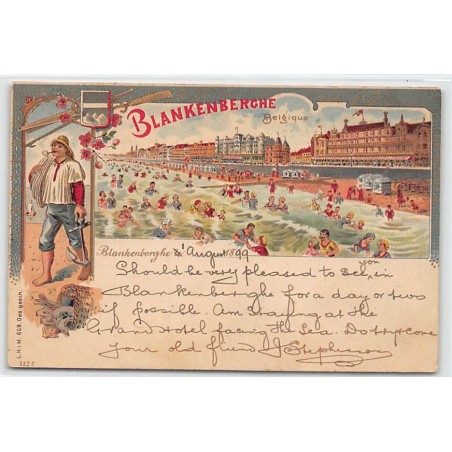 BLANKENBERGHE
Belgique
Blankenberghe 1 August 1899
you
Should be very pleased to see, in
Blankenberghe for a day or two
if possible. Am staying at the
Grand Hotel facing the Sea. Do try & come
your old friend J Stephenson
L.H.I.M. 608. Ges. gesch.